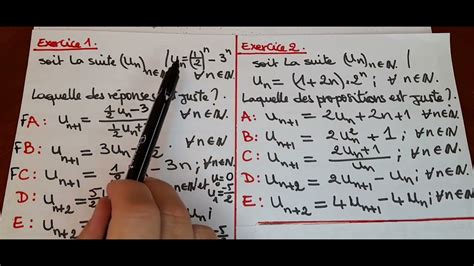 Exercice 1.
soit la suite (Un)n∈ℕ / Un = (1/2)^n - 3^n ∀n∈ℕ.
Laquelle des réponses est juste ?
FA: Un+1 = (1/2 Un - 3) / (1/2 Un +
FB: Un+1 = 3Un -
FC: Un+1 = - 3n ; ∀n∈ℕ.
D: Un+2 = 5/2 et U0 = -5/2
E: Un+2 =
Exercice 2.
soit la suite (Un)n∈ℕ /
Un = (1+2n).2^n ; ∀n∈ℕ.
Laquelle des propositions est juste ?
A: Un+1 = 2Un + 2n + 1 ; ∀n∈ℕ.
B: Un+1 = 2Un² + 1 ; ∀n∈ℕ.
C: Un+1 = (2Un + 1) / Un ; ∀n∈ℕ.
D: Un+2 = 2Un+1 - Un ; ∀n∈ℕ.
E: Un+2 = 4Un+1 - 4Un ; ∀n∈ℕ.